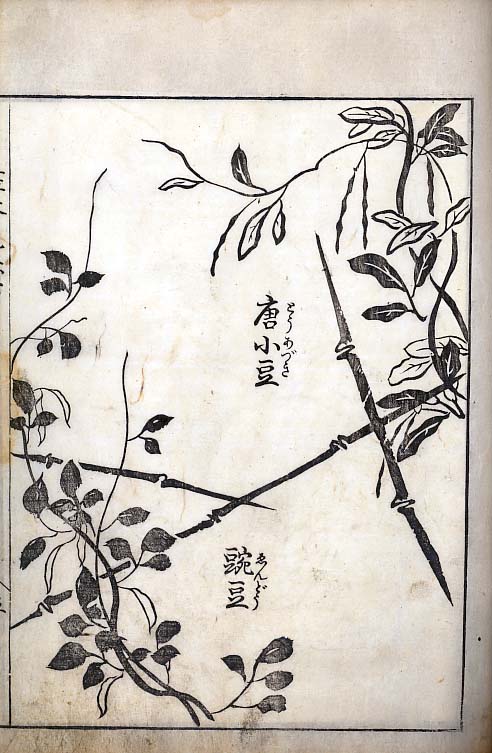 唐小豆
とうあづき
豌豆
ゑんどう